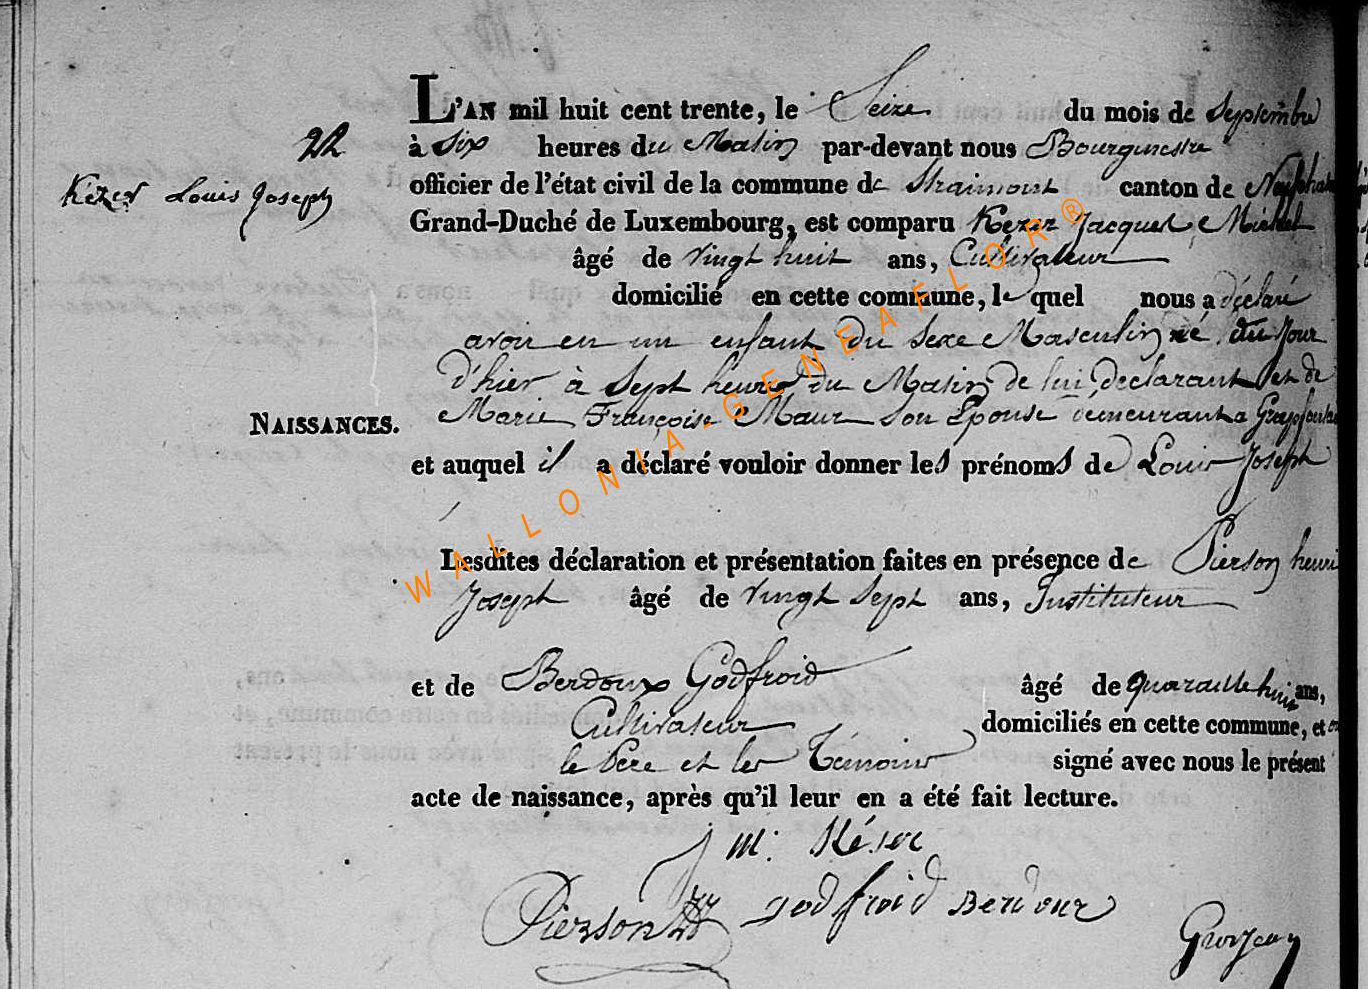 L'AN mil huit cent trente, le Seize du mois de Septembre
22
à Six heures du Matin par-devant nous Bourgmestre
Kézer Louis Joseph
officier de l'état civil de la commune de Straimont canton de
Grand-Duché de Luxembourg, est comparu Kezer Jacques Michel
âgé de vingt huit ans, Cultivateur
domicilié en cette commune, le quel nous a déclaré
avoir eu un enfant du Sexe Masculin né du Jour
d'hier à Sept heures du Matin de lui déclarant et de
Marie Françoise Maur Son Epouse demeurant a
NAISSANCES.
et auquel il a déclaré vouloir donner les prénoms de Louis Joseph
Lesdites déclaration et présentation faites en présence de Pierson henri
Joseph âgé de vingt Sept ans, Instituteur
et de Berdoux Godfroid âgé de quarante huit ans,
Cultivateur domiciliés en cette commune, et
le Père et les Témoins signé avec nous le présent
acte de naissance, après qu'il leur en a été fait lecture.
J M. Kézer
Pierson godfroid Berdoux
Grosjean
WALLONIA-GENEAFLOR®